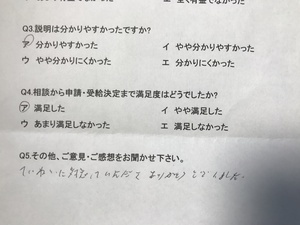 Q3.説明は分かりやすかったですか?
ア 分かりやすかった イ やや分かりやすかった
ウ やや分かりにくかった エ 分かりにくかった
Q4.相談から申請・受給決定まで満足度はどうでしたか?
ア 満足した イ やや満足した
ウ あまり満足しなかった エ 満足しなかった
Q5.その他、ご意見・ご感想をお聞かせ下さい。
ていねいに対応していただきありがとうございました。